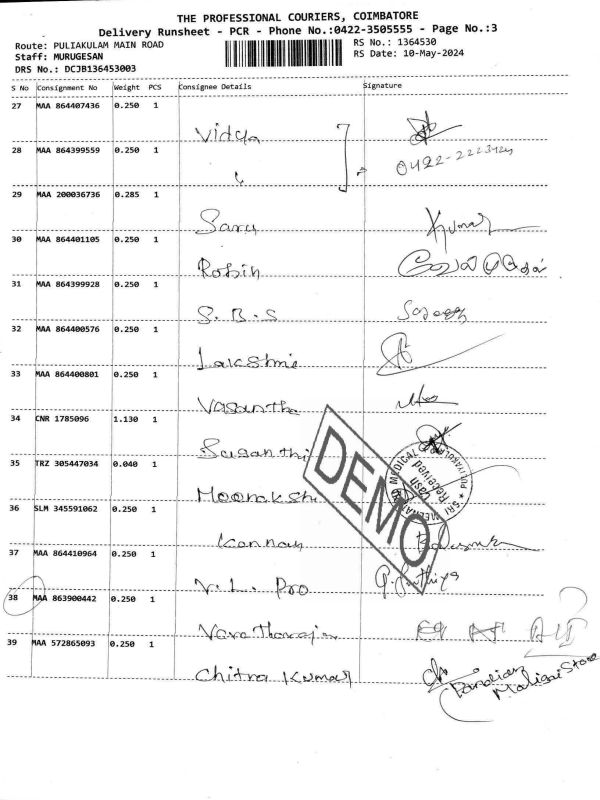 THE PROFESSIONAL COURIERS, COIMBATORE
Delivery Runsheet - PCR - Phone No.:0422-3505555 - Page No.:3
Route: PULIAKULAM MAIN ROAD
RS No.: 1364530
Staff: MURUGESAN
RS Date: 10-May-2024
DRS No.: DCJB136453003
S No Consignment No Weight PCS Consignee Details Signature
27 MAA 864407436 0.250 1
Vidya
28 MAA 864399559 0.250 1
29 MAA 200036736 0.285 1
Saru Kumar
30 MAA 864401105 0.250 1
Robin
31 MAA 864399928 0.250 1
S. B. S
32 MAA 864400576 0.250 1
Lakshmi
33 MAA 864400801 0.250 1
Vasantha
34 CNR 1785096 1.130 1
Susanthi
35 TRZ 305447034 0.040 1
Moonakshi
SRI MEDICAL
Cash
Received
DEMO
36 SLM 345591062 0.250 1
Kannan
37 MAA 864410964 0.250 1
V. L. Pro
38 MAA 863900442 0.250 1
Varatharajan
39 MAA 572865093 0.250 1
Chitra Kumar
Pandian
Maligai Store